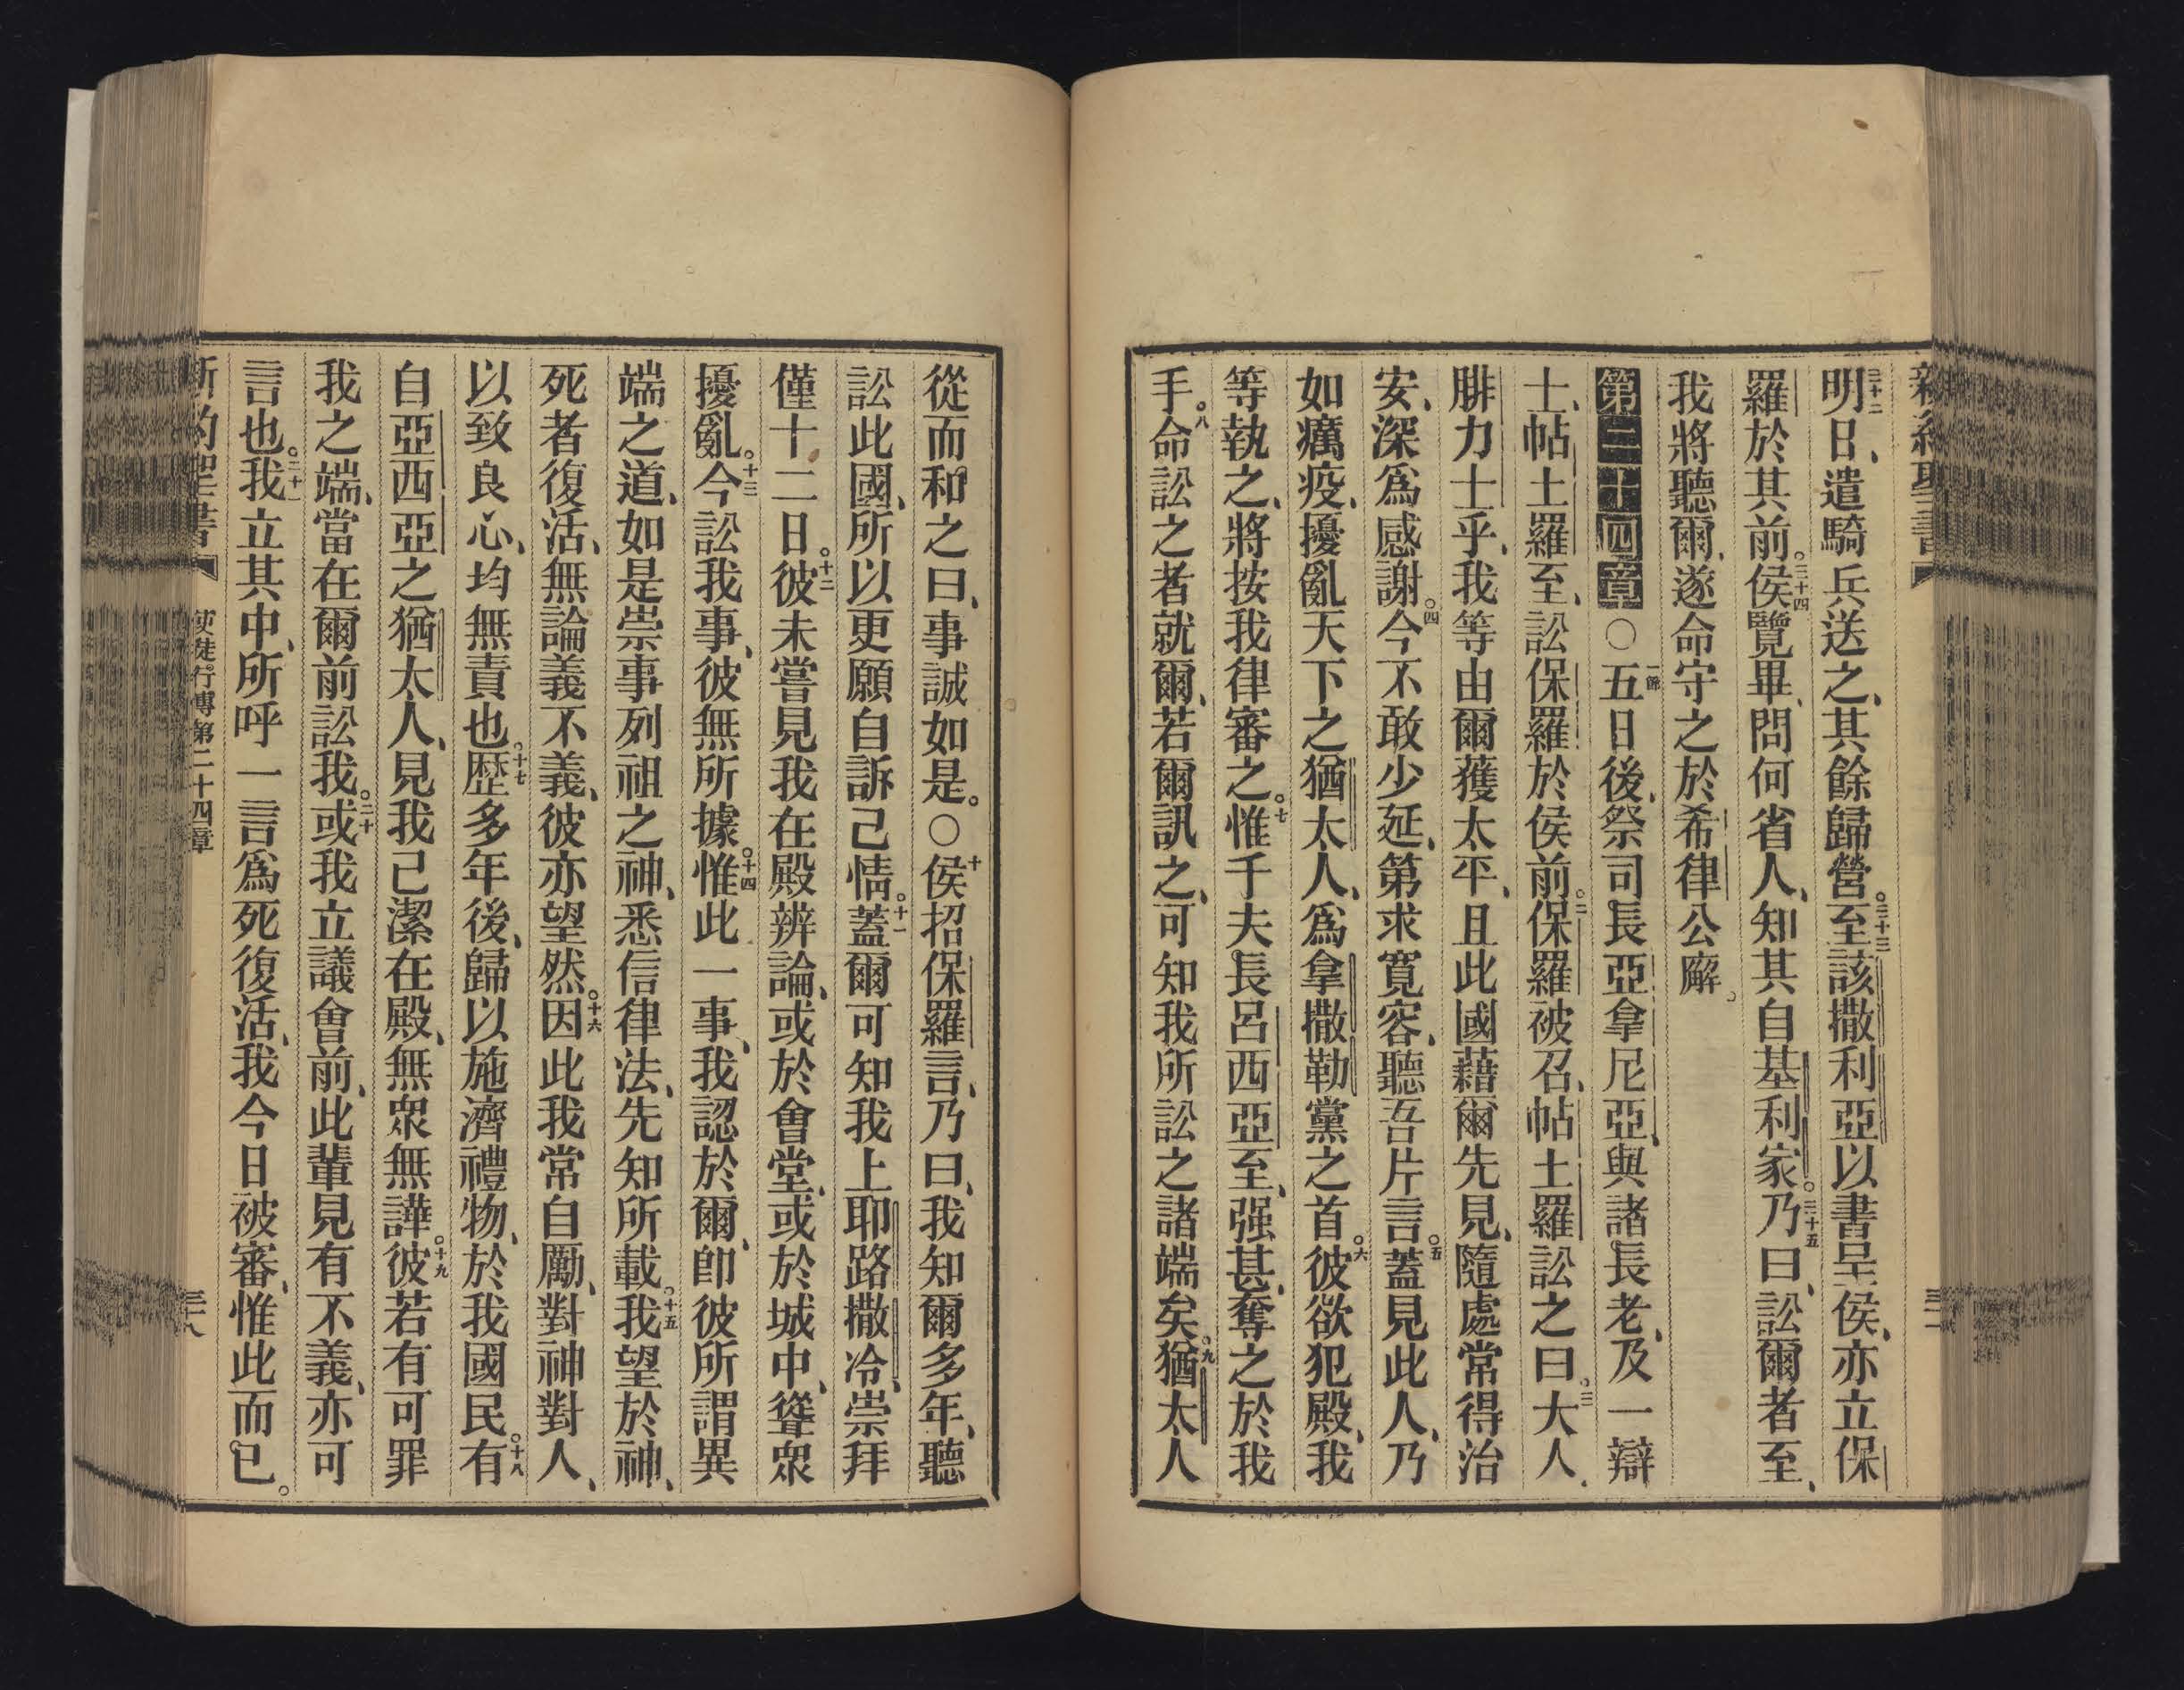 新約聖書
三十二明日、遣騎兵送之、其餘歸營。三十三至該撒利亞以書呈侯、亦立保
羅於其前。三十四侯覽畢、問何省人、知其自基利家。三十五乃曰、訟爾者至、
我將聽爾、遂命守之於希律公廨。
第二十四章○一節五日後、祭司長亞拿尼亞、與諸長老、及一辯
士、帖土羅至、訟保羅於侯前。二保羅被召、帖土羅訟之曰。三大人、
腓力士乎、我等由爾蒦太平、且此國藉爾先見、隨處常得治
安、深爲感謝。四今不敢少延、第求寛容、聽吾片言。五蓋見此人、乃
如癘疫、擾亂天下之猶太人、爲拿撒勒黨之首。六彼欲犯殿、我
等執之、將按我律審之。七惟千夫長呂西亞至、强甚、奪之於我
手。八命訟之者就爾、若爾訊之、可知我所訟之諸端矣。九猶太人
從而和之曰、事誠如是。○十侯招保羅言、乃曰、我知爾多年、聽
訟此國、所以更願自訴己情。十一蓋爾可知我上耶路撒冷、崇拜
僅十二日。十二彼未嘗見我在殿辨論、或於會堂、或於城中、聳衆
擾亂。十三今訟我事、彼無所據。十四惟此一事、我認於爾、卽彼所謂異
端之道、如是崇事列祖之神、悉信律法、先知所載。十五我望於神、
死者復活、無論義不義、彼亦望然。十六因此我常自勵、對神對人、
以致良心、均無責也。十七歷多年後、歸以施濟禮物、於我國民。十八有
自亞西亞之猶太人、見我己潔在殿、無衆無譁。十九彼若有可罪
我之端、當在爾前訟我。二十或我立議會前、此輩見有不義、亦可
言也。二十一我立其中、所呼一言爲死復活、我今日被審、惟此而已。
新約聖書
使徒行傳第二十四章
三十八